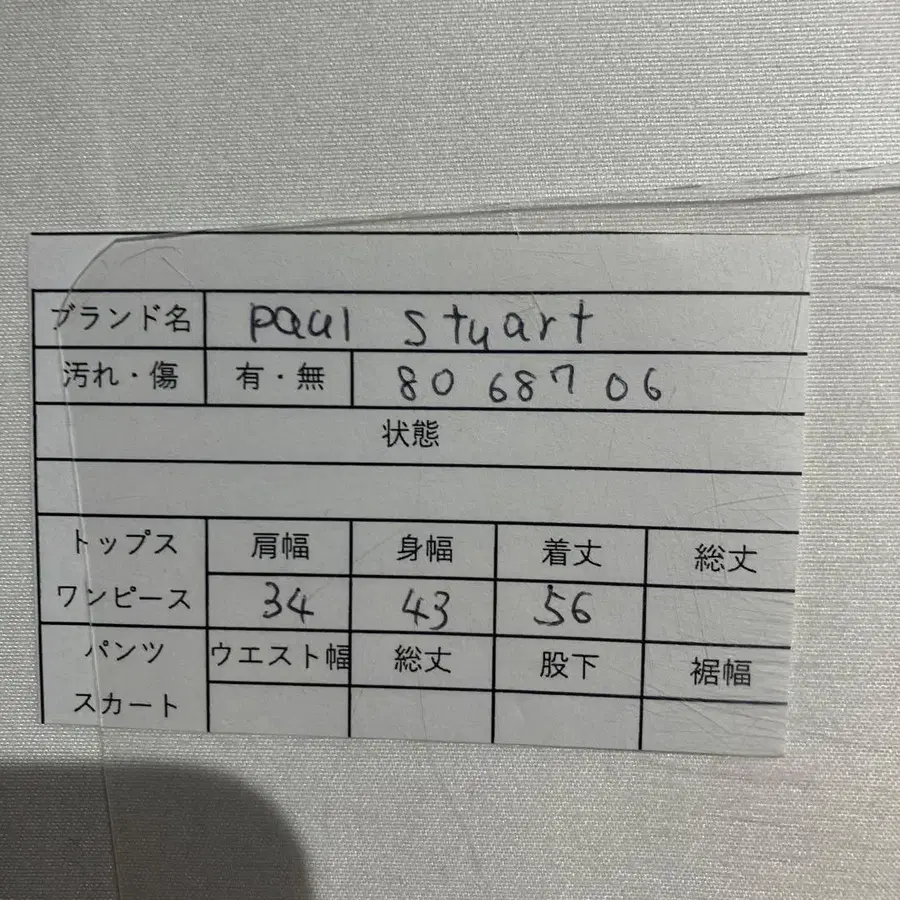 ブランド名 Paul Stuart
汚れ・傷 有・無 80 687 06
状態
トップス 肩幅 身幅 着丈 総丈
ワンピース 34 43 56
パンツ ウエスト幅 総丈 股下 裾幅
スカート